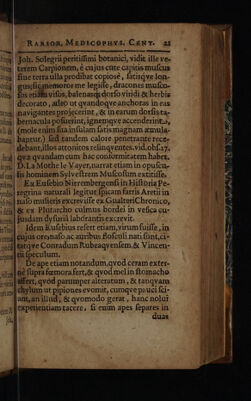 RARIOR. MEDICOPHYS. CENT. 21
Joh. Solegrii peritissimi botanici, vidit ille ve-
terem Carpionem, è cujus cute capitis muscus
sine terra ulla prodibat copiosè, satisqve lon-
gus; sic memor me legisse, dracones musco-
sos etiam visos, balenasq; dorso viridi & herbis
decorato, adeò ut quandoqve anchoras in eas
navigantes projecerint, & in earum dorsis ta-
bernacula posuerint, ignemqve accenderint,
(mole enim sua insulam satis magnam æmula-
bantur,) ilsd. tandem calore penetrante rece-
debant, illos attonitos relinqventes. vid. obs. 17,
qvæ qvandam cum hac conformitatem habet.
D. La Mothe le Vayer, narrat etiam in opuscu-
lis hominem Sylvestrem Muscosum extitisse.
Ex Eusebio Nirrembergensi in Historia Pe-
regrina naturali legitur spicam farris Aretii in
naso mulieris excrevisse ex Gualteri Chronico,
& ex Plutarcho culmus hordei in vesica cu-
jusdam dysuria laborantis excrevit.
Idem Eusebius refert etiam, virum fuisse, in
cujus ore, naso ac auribus flosculi nati sunt, ci-
tatqve Conradum Rubeaqvensem & Vincen-
tii speculum.
De ape etiam notandum, qvod ceram exter-
nè supra femora fert, & qvod mel in stomacho
affert, qvod parumper alteratum, & tanqvam
chylum ut pipiones evomit, cumqve pauci sci-
ant, an illud, & qvomodo gerat, hanc nolui
experientiam tacere, si enim apes separes in
duas